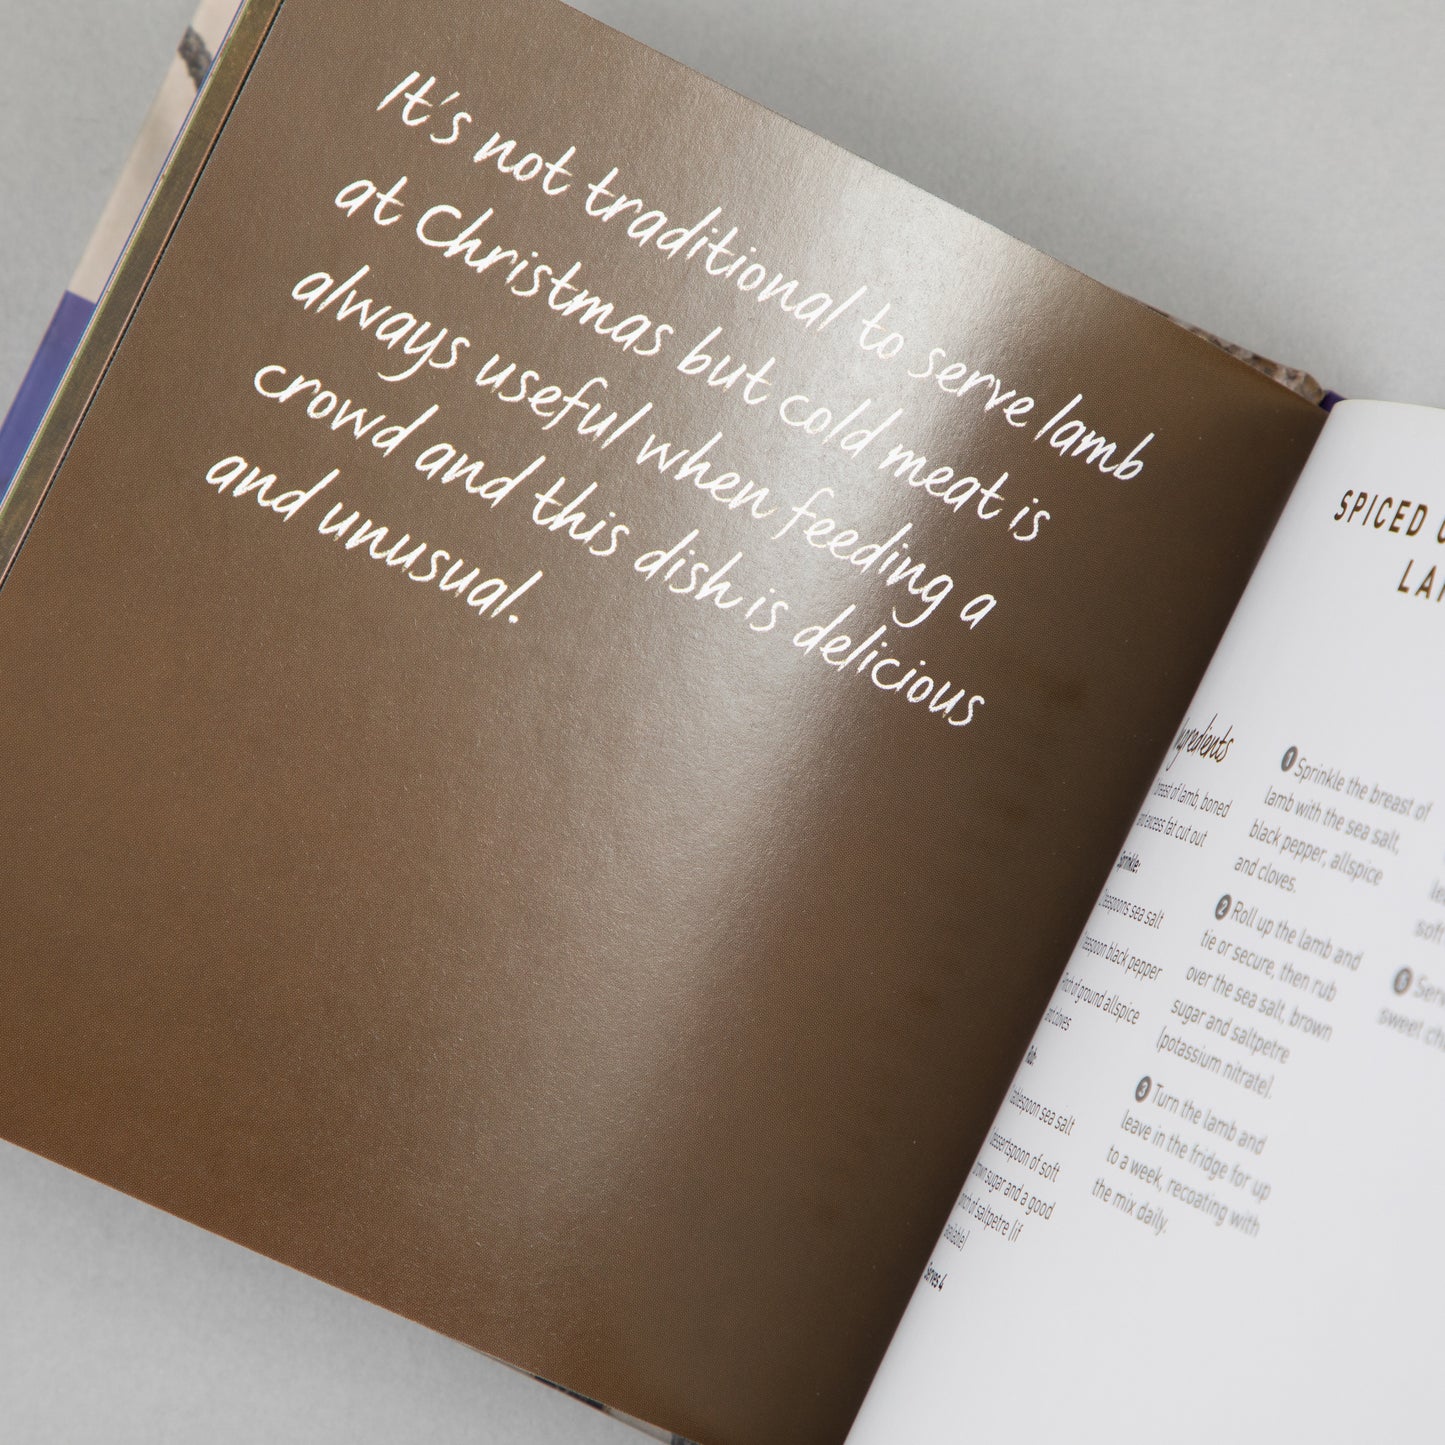 It's not traditional to serve lamb
at Christmas but cold meat is
always useful when feeding a
crowd and this dish is delicious
and unusual.
SPICED
Ingredients
breast of lamb, boned
and excess fat cut out
Sprinkle:
teaspoons sea salt
teaspoon black pepper
Pinch of ground allspice
and cloves
Rub:
tablespoon sea salt
dessertspoon of soft
brown sugar and a good
pinch of saltpetre (if
available)
Serves 4
1 Sprinkle the breast of
lamb with the sea salt,
black pepper, allspice
and cloves.
2 Roll up the lamb and
tie or secure, then rub
over the sea salt, brown
sugar and saltpetre
(potassium nitrate).
3 Turn the lamb and
leave in the fridge for up
to a week, recoating with
the mix daily.
soft
sweet